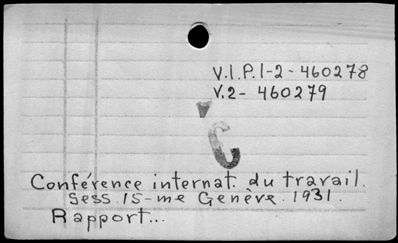 V.1.P.1-2 - 460278
V.2 - 460279
Conférence internat. du travail.
Sess. 15-me Genève. 1931.
Rapport...